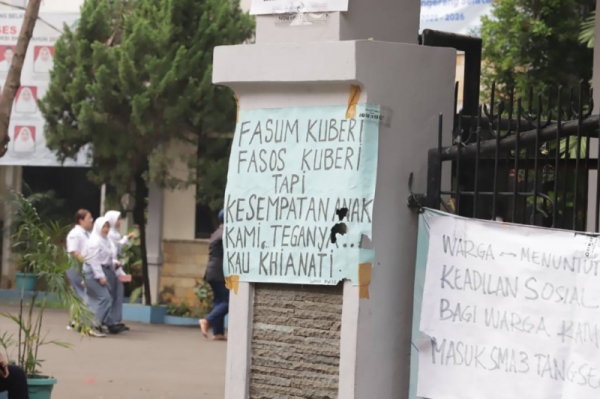 FASUM KUBERI
FASOS KUBERI
TAPI
KESEMPATAN ANAK
KAMI, TEGANY...
KAU KHIANATI
WARGA MENUNTUT
KEADILAN SOSIAL
BAGI WARGA
MASUK SMA 3 TANGSE